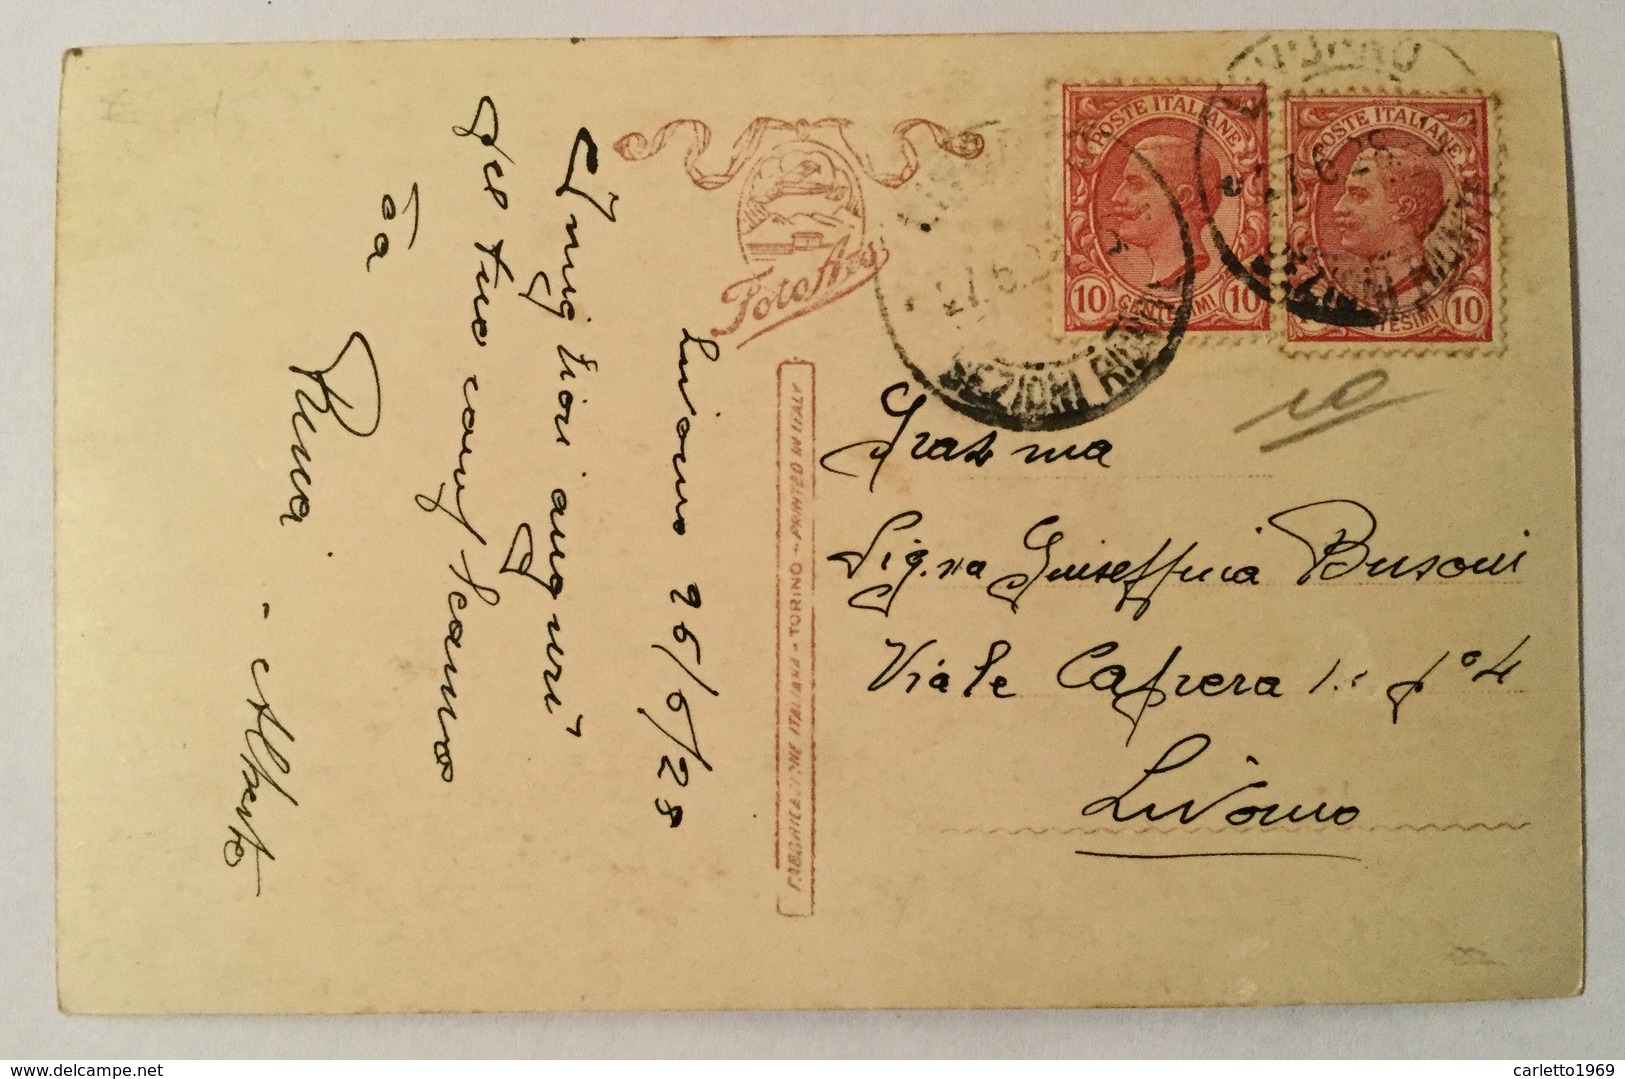 Livorno 26/6/28
I miglior auguri
pel tuo compleanno
Ta
Pina
- Alberto
Foto Ars
FABBRICAZIONE ITALIANA - TORINO - PRINTED IN ITALY
POSTE ITALIANE
10 CENTESIMI 10
POSTE ITALIANE
CENTESIMI 10
LIVORNO
27.6.28
SEZIONI RIUNITE
SEZIONI RIUNITE
10
Gra
Sig.na Giuseffina Busoni
Viale Caprera 1. p° 4
Livorno
delcampe.net
carletto1969